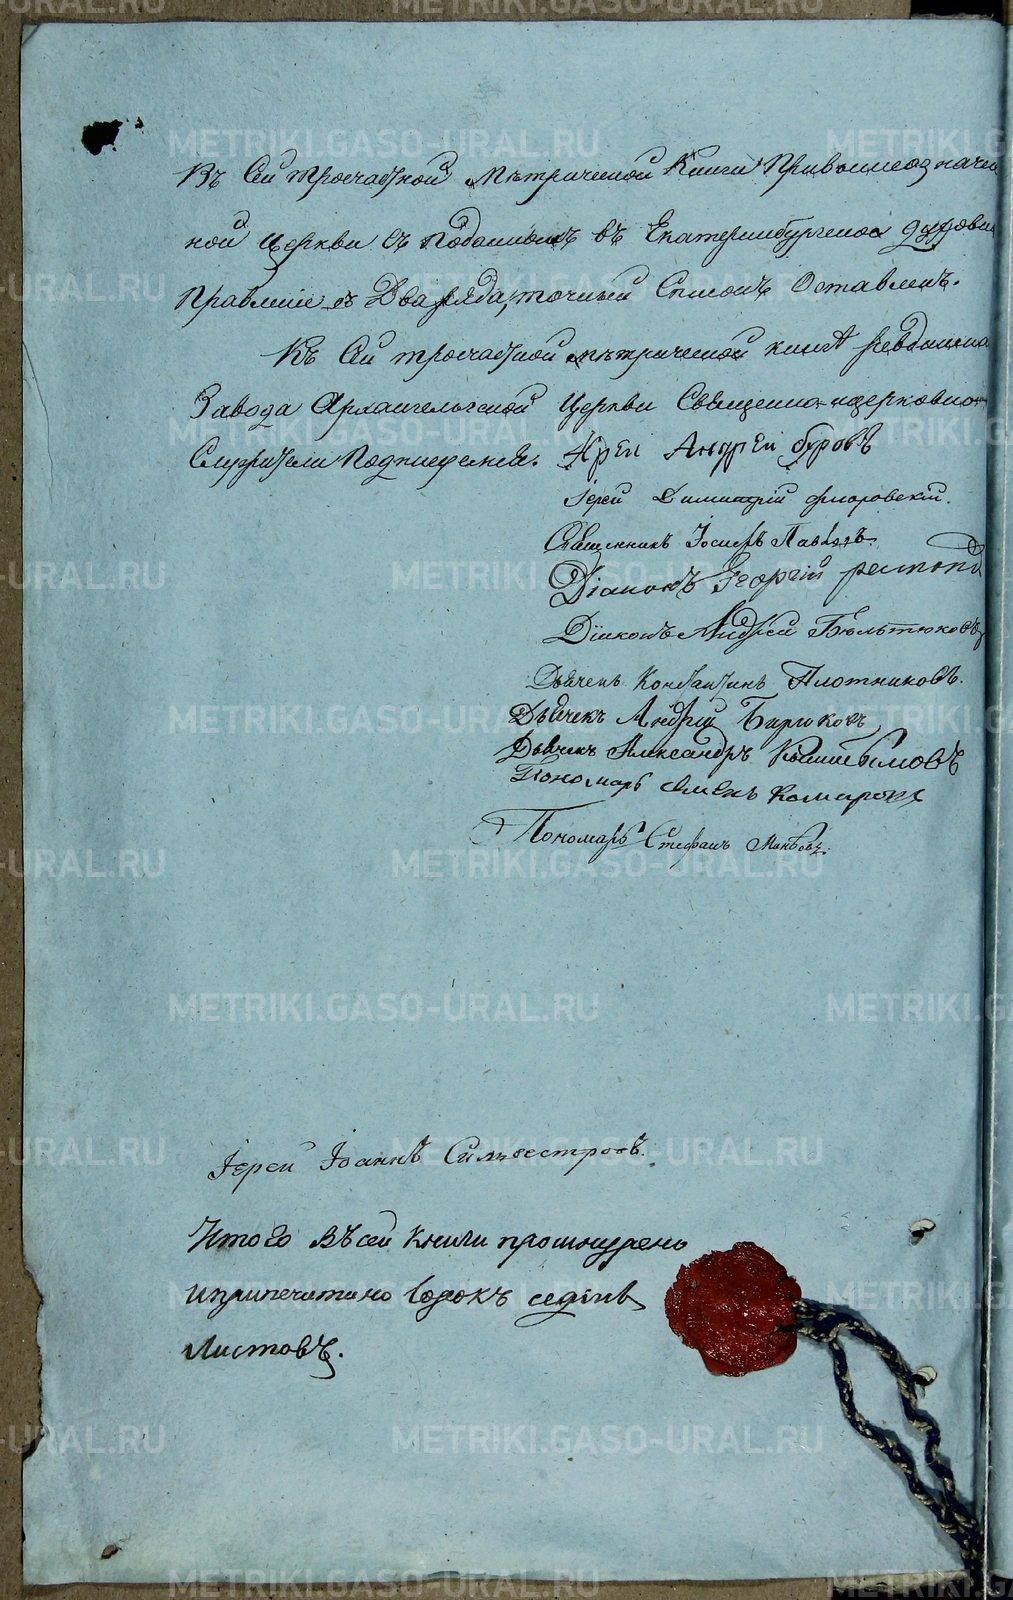 Въ Сей троечастной Мѣтрической Книги При вышеозначен
ной Церкви съ поданной въ Екатеринбургское духовно
Правление въ Два ряда, точный Список Оставленъ.
Къ Сей троечастной мѣтрической книгѣ Ревдинско
Завода Архангельской Церкви Священно и церковно-
Служители Подписуемся. Iерей Андрей Буровъ
Iерей Димитрий Флоровский.
Священникъ Иосифъ Павловъ.
Dиаконъ Георгий
Диконъ Андрей Бѣльтюковъ
Дьячекъ Константинъ Плотниковъ.
Дьячекъ Андрей Бирюковъ
Дьячекъ Александръ Кыштымовъ
Пономарь Семенъ Комаровъ
Пономарь Стефанъ
Iерей Iоаннъ Сильвестровъ.
Итого въ сей книги прошнурено
и припечатано сорокъ седмь
Листовъ.
METRIKI.GASO-URAL.RU